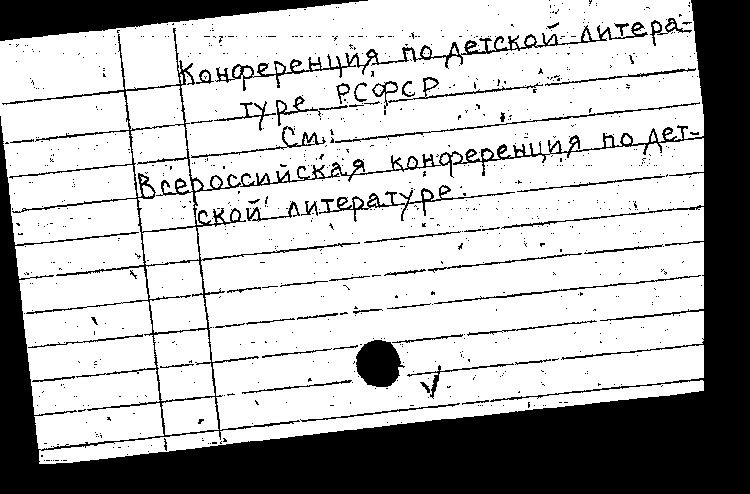 Конференция по детской литера-
туре РСФСР
См.:
Всероссийская конференция по дет-
ской литературе.